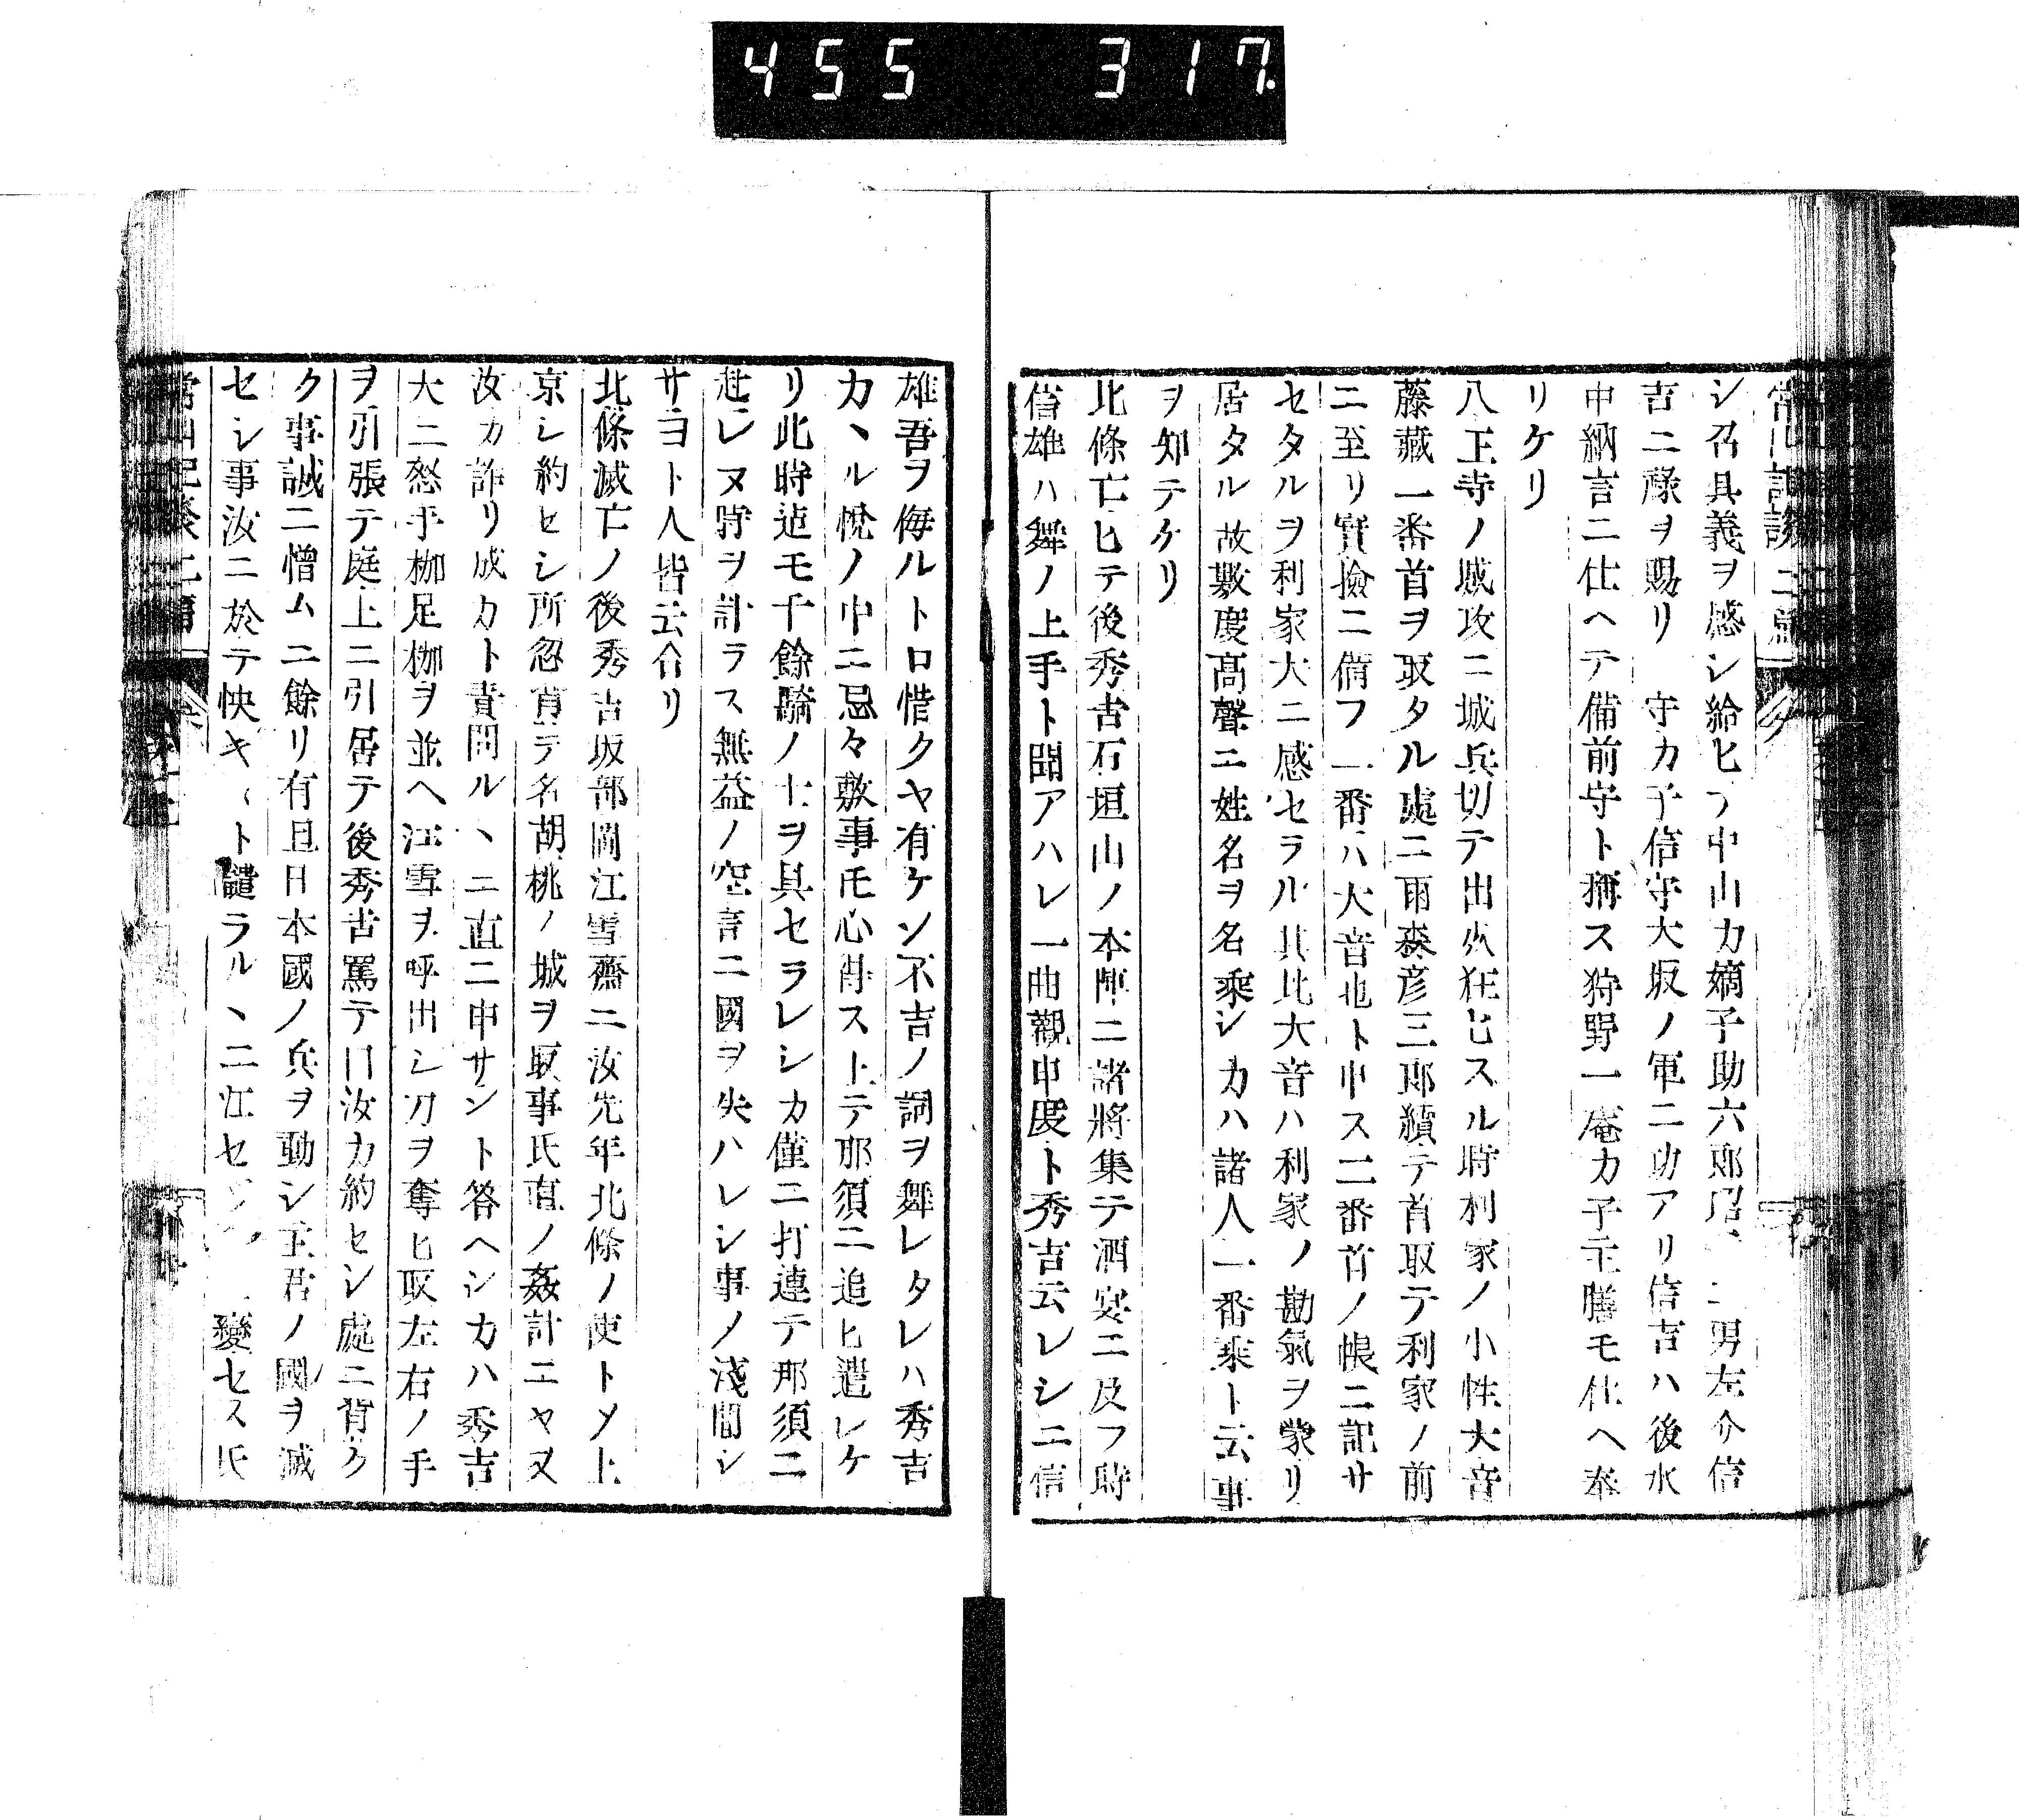 455 317
シ召具義ヲ感シ給ヒフ中山カ嫡子助六郎昭、二男左介信
吉ニ祿ヲ賜リ 守カ子信守大坂ノ軍ニ功アリ信吉ハ後水
中納言ニ仕ヘテ備前守ト稱ス狩野一庵カ子主膳モ仕ヘ奉
リケリ
八王寺ノ城攻ニ城兵切テ出火狂ヒスル時利家ノ小性大音
藤藏一番首ヲ取タル處ニ雨森彦三郎續テ首取テ利家ノ前
ニ至リ實撿ニ備フ一番ハ大音也ト申ス二番首ノ帳ニ記サ
セタルヲ利家大ニ感セラル其比大音ハ利家ノ勘氣ヲ蒙リ
居タル故數度高聲ニ姓名ヲ名乘シカハ諸人一番乘ト云事
ヲ知テケリ
北條亡ヒテ後秀吉石垣山ノ本陣ニ諸將集テ酒宴ニ及フ時
信雄ハ舞ノ上手ト聞アハレ一曲觀申度ト秀吉云レシニ信
雄吾ヲ侮ルト口惜クヤ有ケン不吉ノ詞ヲ舞レタレハ秀吉
カヽル悅ノ中ニ忌々敷事氐心得ストテ那須ニ追ヒ遣レケ
リ此時迠モ千餘騎ノ士ヲ具セラレシカ僅ニ打連テ那須ニ
赴レヌ時ヲ計ラス無益ノ空言ニ國ヲ失ハレシ事ノ淺間シ
サヨト人皆云合リ
北條滅亡ノ後秀吉坂部岡江雪齋ニ汝先年北條ノ使トメ上
京シ約セシ所忽背テ名胡桃ノ城ヲ取事氏直ノ姦計ニヤ又
汝カ詐リ成カト責問ルヽニ直ニ申サント答ヘシカハ秀吉
大ニ怒手枷足枷ヲ並ヘ江雪ヲ呼出シ刀ヲ奪ヒ取左右ノ手
ヲ引張テ庭上ニ引居テ後秀吉罵テ曰汝カ約セシ處ニ背ク
ク事誠ニ憎ムニ餘リ有且日本國ノ兵ヲ動シ主君ノ國ヲ滅
セシ事汝ニ於テ快キヽト譴ラルヽニ江セ 變セス氏